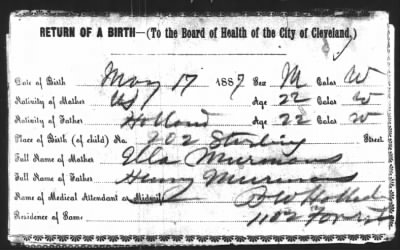 RETURN OF A BIRTH—(To the Board of Health of the City of Cleveland.)
Date of Birth May 17 1887 Sex M Color W
Nativity of Mother US Age 22 Color W
Nativity of Father Holland Age 22 Color W
Place of Birth (of child) No. 202 Sterling Street
Full Name of Mother Ella
Full Name of Father Henry
Name of Medical Attendant or Midwife
Residence of Same 1102